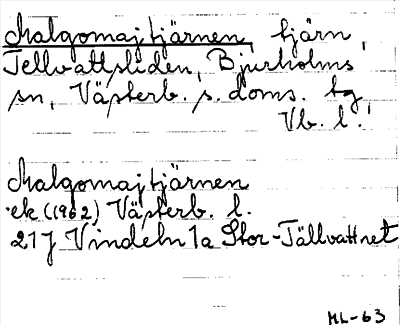 Malgomajtjärnen, tjärn,
Tellvattsliden, Bjurholms
sn, Västerb. s. doms. tg,
Vb. l.
Malgomajtjärnen
ek (1962) Västerb. l.
21J Vindeln 1a Stor-Tällvattnet
HL-63